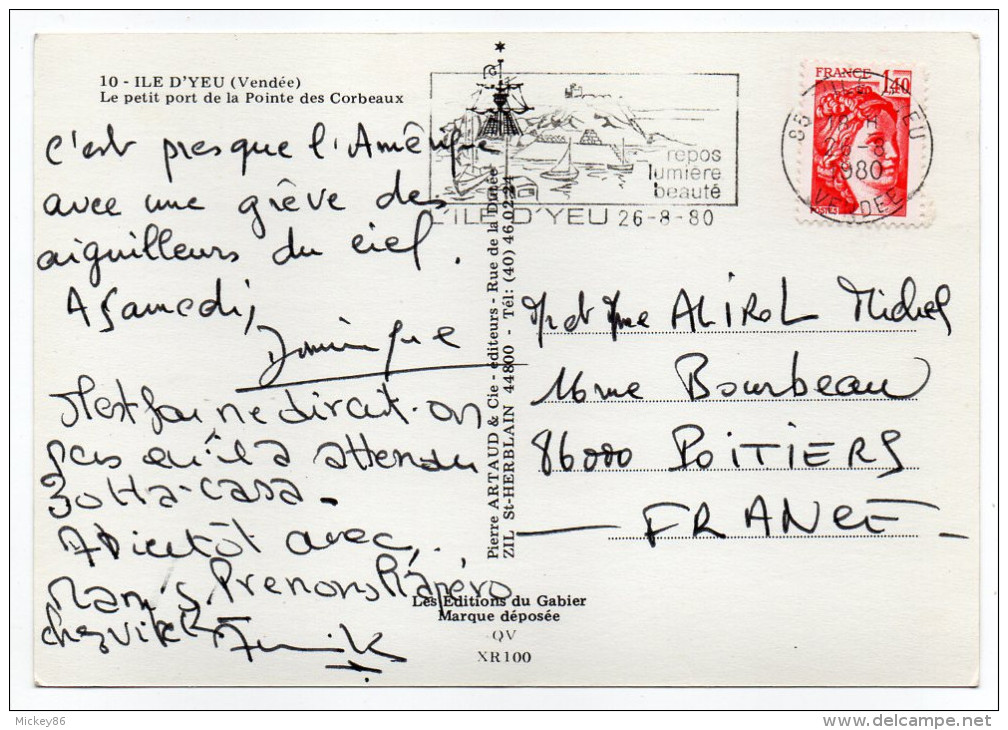 10 - ILE D'YEU (Vendée)
Le petit port de la Pointe des Corbeaux
c'est presque l'Amérique
avec une grève des
aiguilleurs du ciel.
A Samedi,
Dominique
ne dirait-on
pas qu'il a attendu
casa.
A Bientôt avec
Prenons l'apéro
chez
repos
lumière
beauté
L'ILE D'YEU 26-8-80
FRANCE
1,40
POSTES
85 ILE D'YEU
18 H
26-8
1980
VENDEE
Pierre ARTAUD & Cie - éditeurs - Rue de la Dutée
ZIL St-HERBLAIN 44800 - Tél: (40) 46.02.24
M et Mme ALIROL Michel
16 rue Bourbeau
86000 POITIERS
FRANCE
Les Editions du Gabier
Marque déposée
QV
XR100
Mickey86
delcampe.net